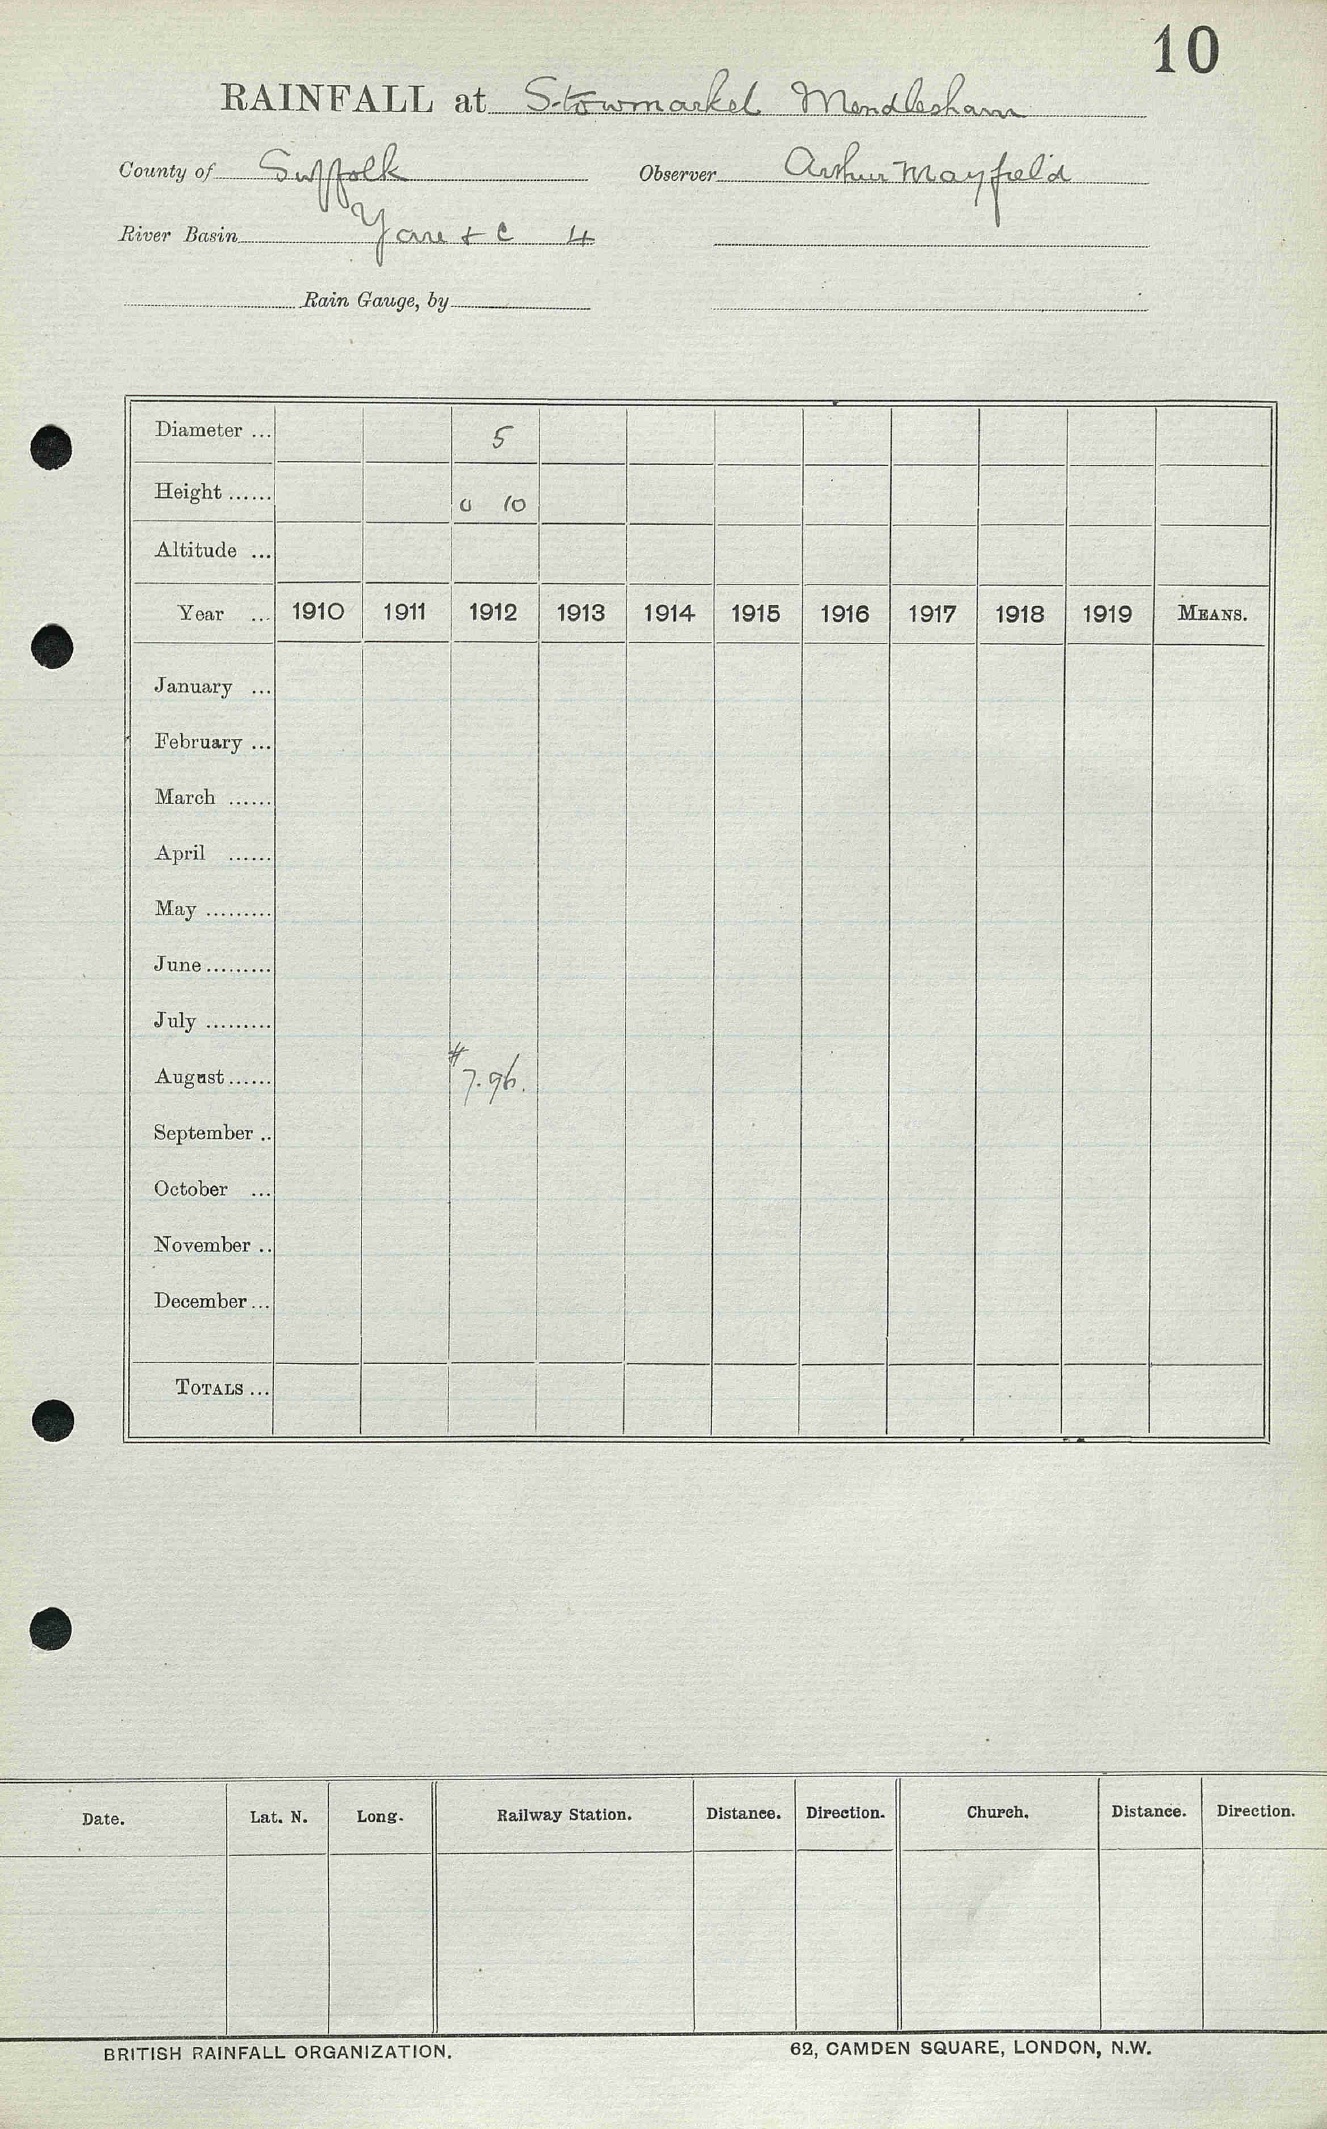 10
RAINFALL at Stowmarket Mendlesham
County of Suffolk Observer Arthur Mayfield
River Basin Yare & c 4
Rain Gauge, by
Diameter ... 5
Height ...... 0 10
Altitude ...
Year ... 1910 1911 1912 1913 1914 1915 1916 1917 1918 1919 MEANS.
January ...
February ...
March ......
April ......
May .........
June .........
July .........
August ...... # 7.96.
September ..
October ...
November ..
December ...
TOTALS ...
Date. Lat. N. Long. Railway Station. Distance. Direction. Church. Distance. Direction.
BRITISH RAINFALL ORGANIZATION. 62, CAMDEN SQUARE, LONDON, N.W.